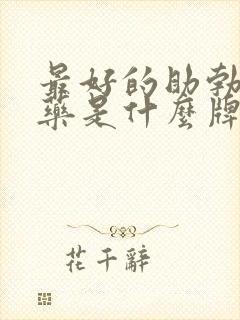 最好的助勃
藥是什麼牌
花千辭